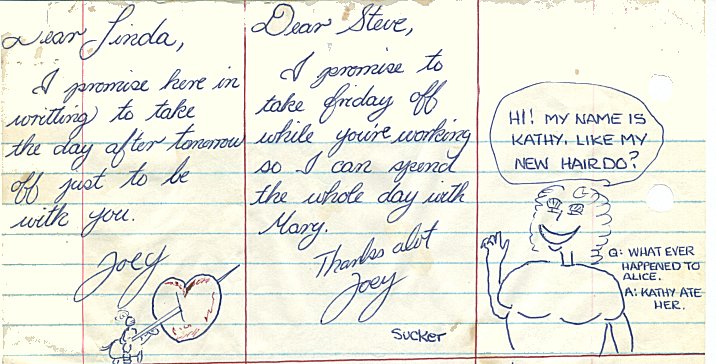 Dear Linda,
I promise here in
writting to take
the day after tomorrow
off just to be
with you.
Joey
Dear Steve,
I promise to
take friday off
while you're working
so I can spend
the whole day with
Mary.
Thanks alot
Joey
Sucker
HI! MY NAME IS
KATHY. LIKE MY
NEW HAIRDO?
Q: WHAT EVER
HAPPENED TO
ALICE.
A: KATHY ATE
HER.